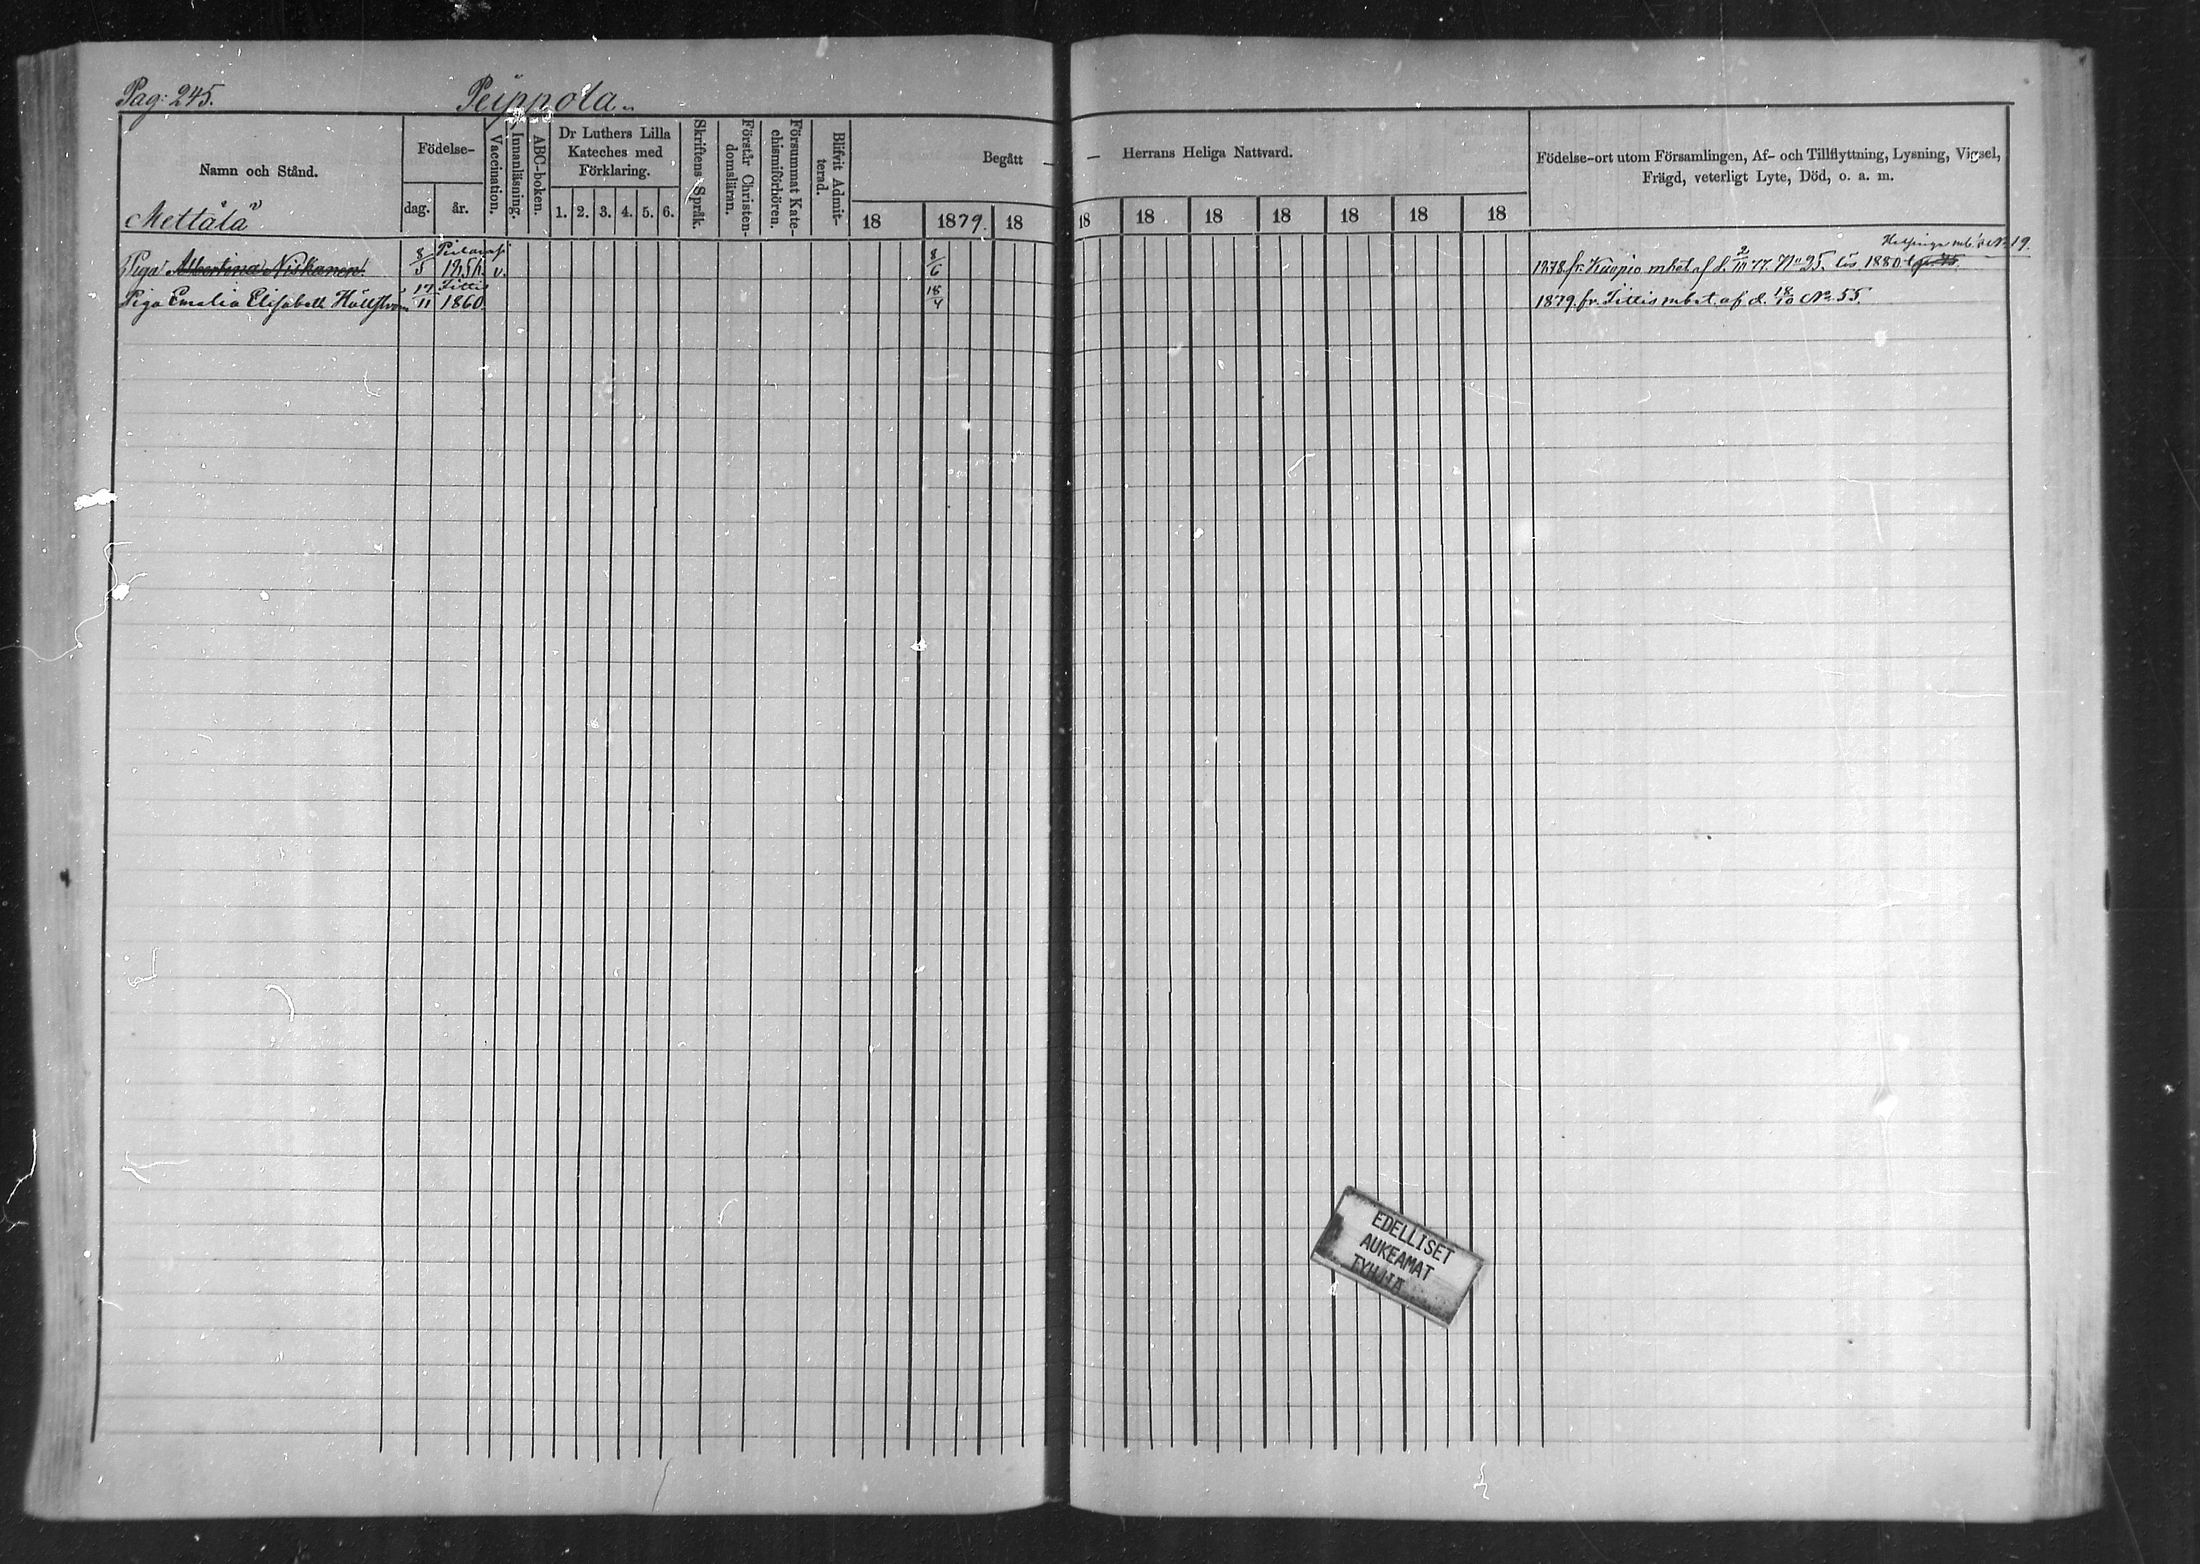 Pag: 245. Peippola
Namn och Stånd.
Födelse-
dag. år.
Vaccination.
Innanläsning.
ABC-boken.
Dr Luthers Lilla
Kateches med
Förklaring.
1. 2. 3. 4. 5. 6.
Skriftens Språk.
Förstår Christen-
domsläran.
Försummat Kate-
chismiförhören.
Blifvit Admit-
terad.
Begått — — Herrans Heliga Nattvard.
18 1879. 18 18 18 18 18 18 18 18
Födelse-ort utom Församlingen, Af- och Tillflyttning, Lysning, Vigsel,
Frägd, veterligt Lyte, Död, o. a. m.
Mettälä
Helsinge No 19.
Piga Albertina Niskanen 8/5 v. 8/6 1878 fr. Kuopio mbet af d. 2/III 77. No 95. 1880
Sittis
Piga Emelia Elisabeth Hällström 17/11 1860. 18/4 1879 fr. Sittis mbet. af d. 18/10 No 55.
EDELLISET
AUKEAMAT
TYHJIÄ